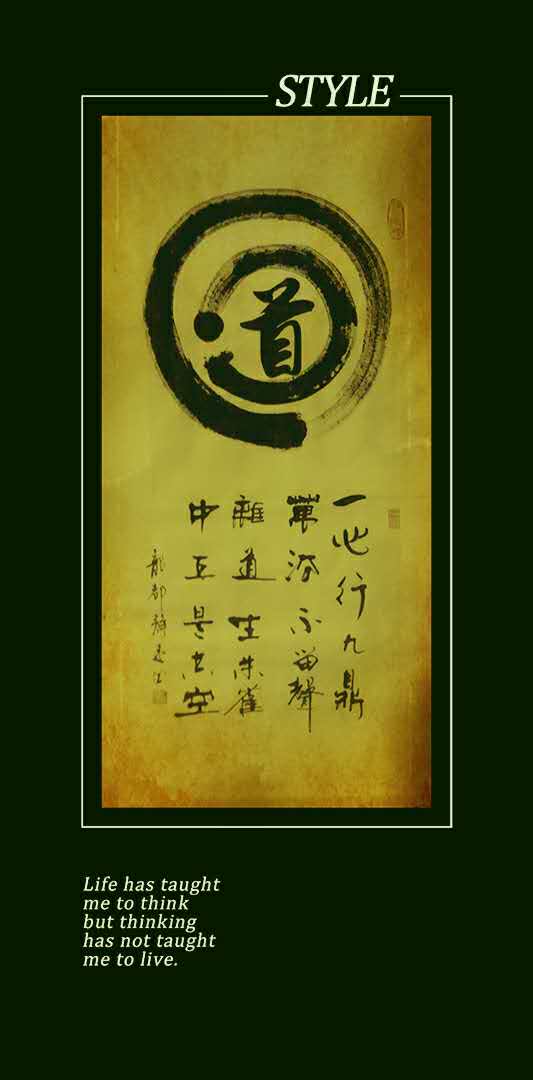 STYLE
道
一心行九鼎
萬不留聲
離道生朱雀
中是空
龍都
Life has taught
me to think
but thinking
has not taught
me to live.